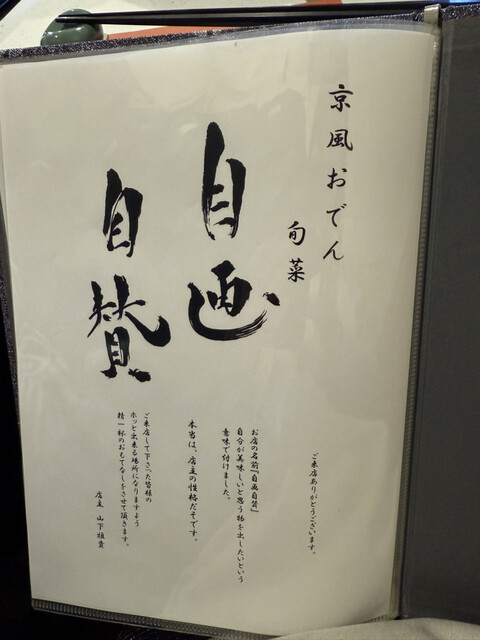 京風おでん
旬菜
自画
自賛
ご来店ありがとうございます。
お店の名前『自画自賛』
自分が美味しいと思う物を出したいという
意味で付けました。
本当は、店主の性格だそです。
ご来店して下さった皆様の
ホッと出来る場所になりますよう
精一杯のおもてなしをさせて頂きます。
店主 山下雅貴